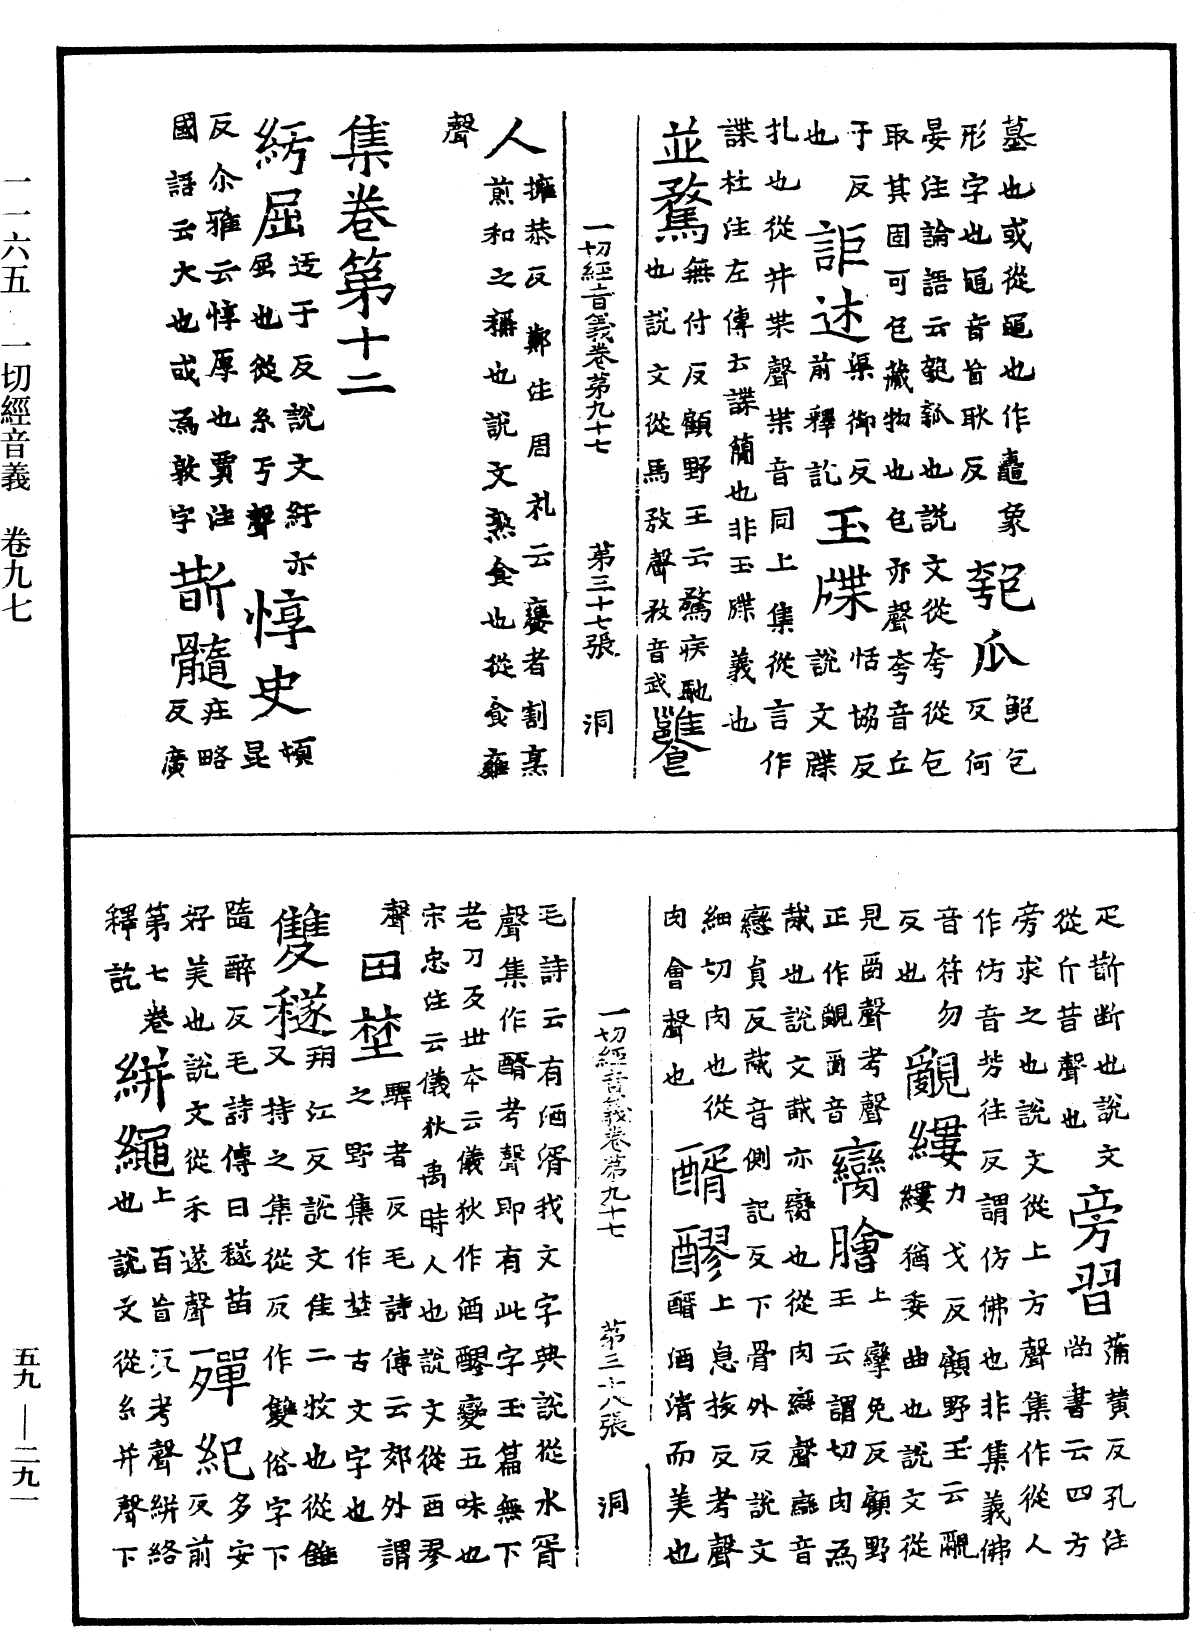 墓也或從黽也作鼄象
形字也黽音盲耿反
匏瓜
鮑包反何
晏注論語云匏瓠也說文從夸從包
取其固可包藏物也包亦聲夸音丘
于反
詎述
渠御反
前釋訖
玉牒
恬協反說文牒
也
札也從片枼聲枼音同上集從言作
諜杜注左傳云諜簡也非玉牒義也
並騖
無付反顧野王云騖疾馳
也說文從馬敄聲敄音武
饔
一切經音義卷第九十七 第三十七張 洞
人
擁恭反鄭注周礼云饔者割烹
煎和之稱也說文熟食也從食雍
聲
集卷第十二
紆屈
迂于反說文紆亦
屈也從糸亐聲
惇史
頓昆
反尒雅云惇厚也賈注
國語云大也或爲敦字
斮髓
庄略
反廣
疋斮断也說文
從斤昔聲也
旁習
蒲黄反孔注
尚書云四方
旁求之也說文從上方聲集作從人
作仿音芳往反謂仿佛也非集義佛
音符勿
反也
覶縷
力戈反顧野王云覶
縷猶委曲也說文從
見𤔔聲考聲
正作覶𤔔音
臠膾
上孿免反顧野
王云謂切肉為
胾也說文胾亦臠也從肉䜌聲䜌音
戀員反胾音側記反下骨外反說文
細切肉也從
肉會聲也
醑醪
上息挍反考聲
醑酒清而美也
毛詩云有酒湑我文字典說從水胥
聲集作醑考聲即有此字玉篇無下
老刀反世本云儀狄作酒醪變五味也
宋忠注云儀狄禹時人也說文從酉翏
聲
田埜
驛者反毛詩傳云郊外謂
之野集作埜古文字也
雙穟
朔江反說文隹二枚也從雔
又持之集從反作䨇俗字下
隨醉反毛詩傳曰穟苗
好美也說文從禾遂聲
一殫紀
多安
反前
第七卷
釋訖
絣繩
上百盲反考聲絣絡
也說文從糸并聲下
一切經音義卷第九十七 第三十八張 洞
一一六五 一切經音義 卷九七
五九—二九一